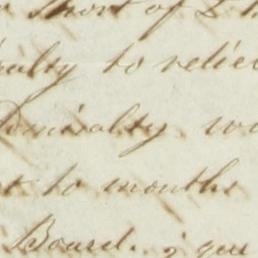 short of
alty to reliev
Admiralty wo
t to months
Board. ; you